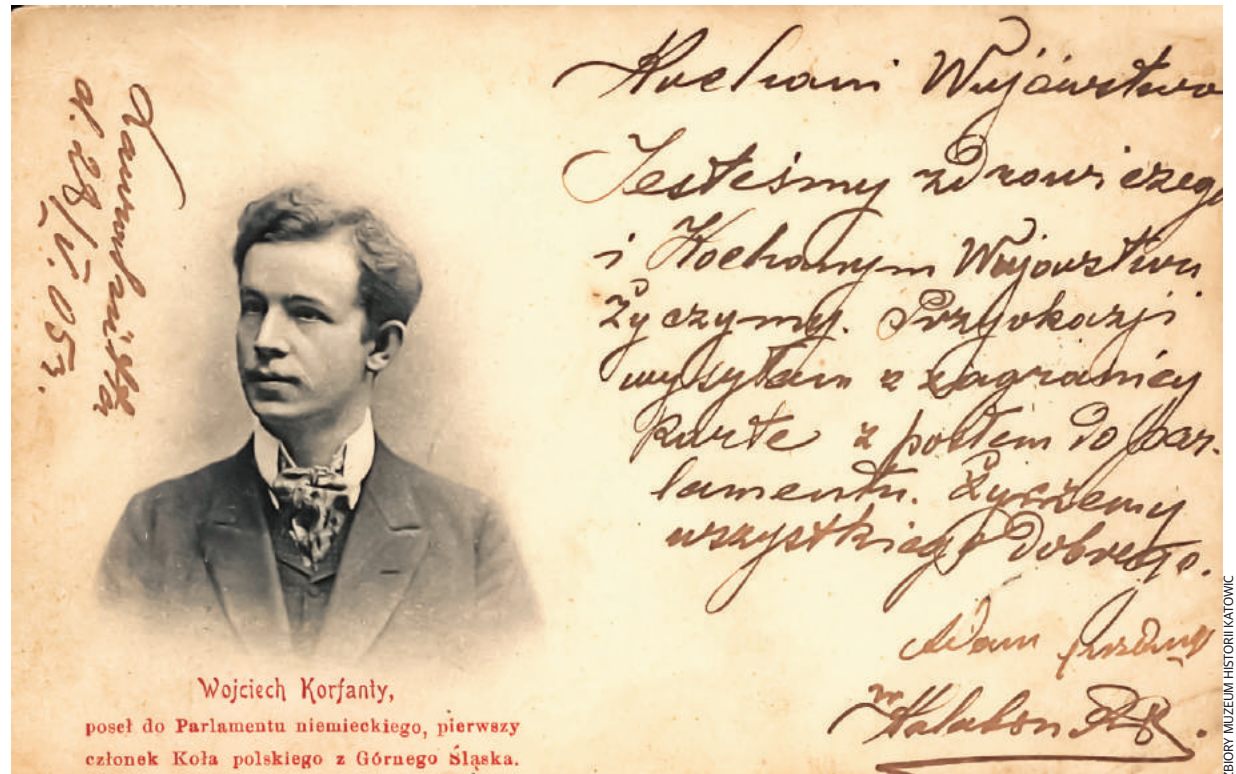 Kochani Wujówstwo
Jesteśmy zdrowi czego
i Kochanym Wujowstwu
życzymy. Przyokazji
wysyłam z zagranicy
Karte z posłem do par-
lamentu. Życzemy
wszystkiego dobrego.
Adam
d. 28/V. 05r.
Wojciech Korfanty,
poseł do Parlamentu niemieckiego, pierwszy
członek Koła polskiego z Górnego Śląska.
ZBIORY MUZEUM HISTORII KATOWIC